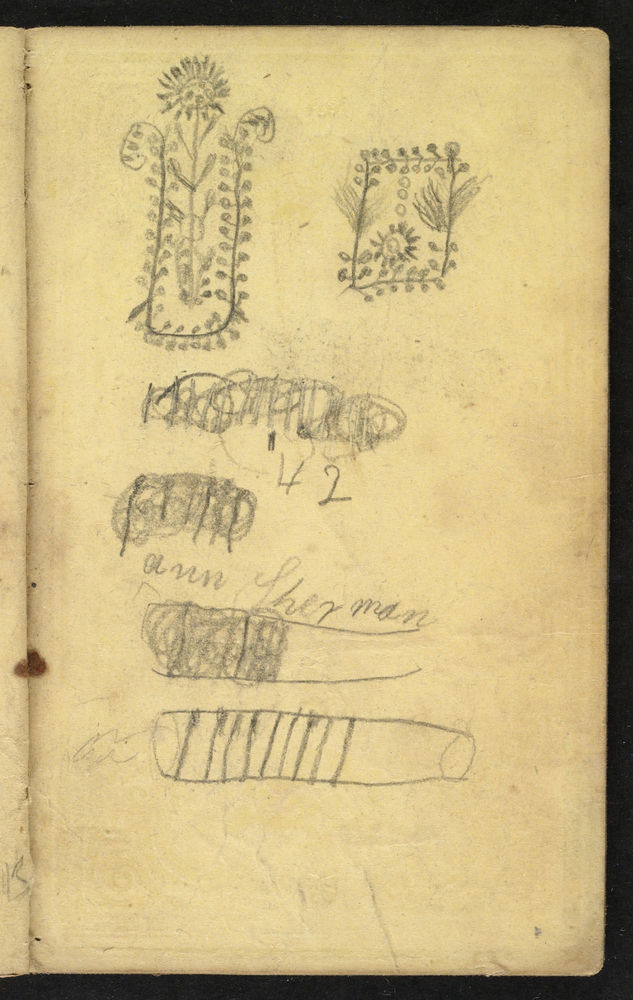 42
ann Sherman